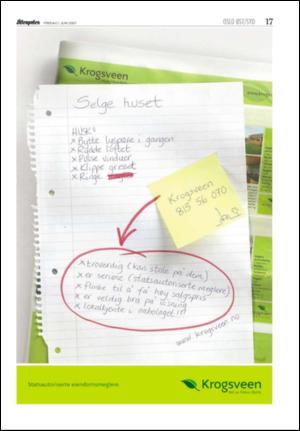 Aftenposten FREDAG 1. JUNI 2007 OSLO ØST/SYD 17
Krogsveen
Selge huset
HUSK:
x Bytte lyspære i gangen
x Rydde loftet
x Pusse vinduer
x Klippe gresset
x Ringe
Krogsveen
815 56 070
x troverdig (kan stole på dem)
x er seriøse (statsautoriserte meglere)
x flinke til å få høy salgspris
x er veldig bra på visning
x lokalkjente i nabolaget!!!
www.krogsveen.no
Statsautoriserte eiendomsmeglere
Krogsveen